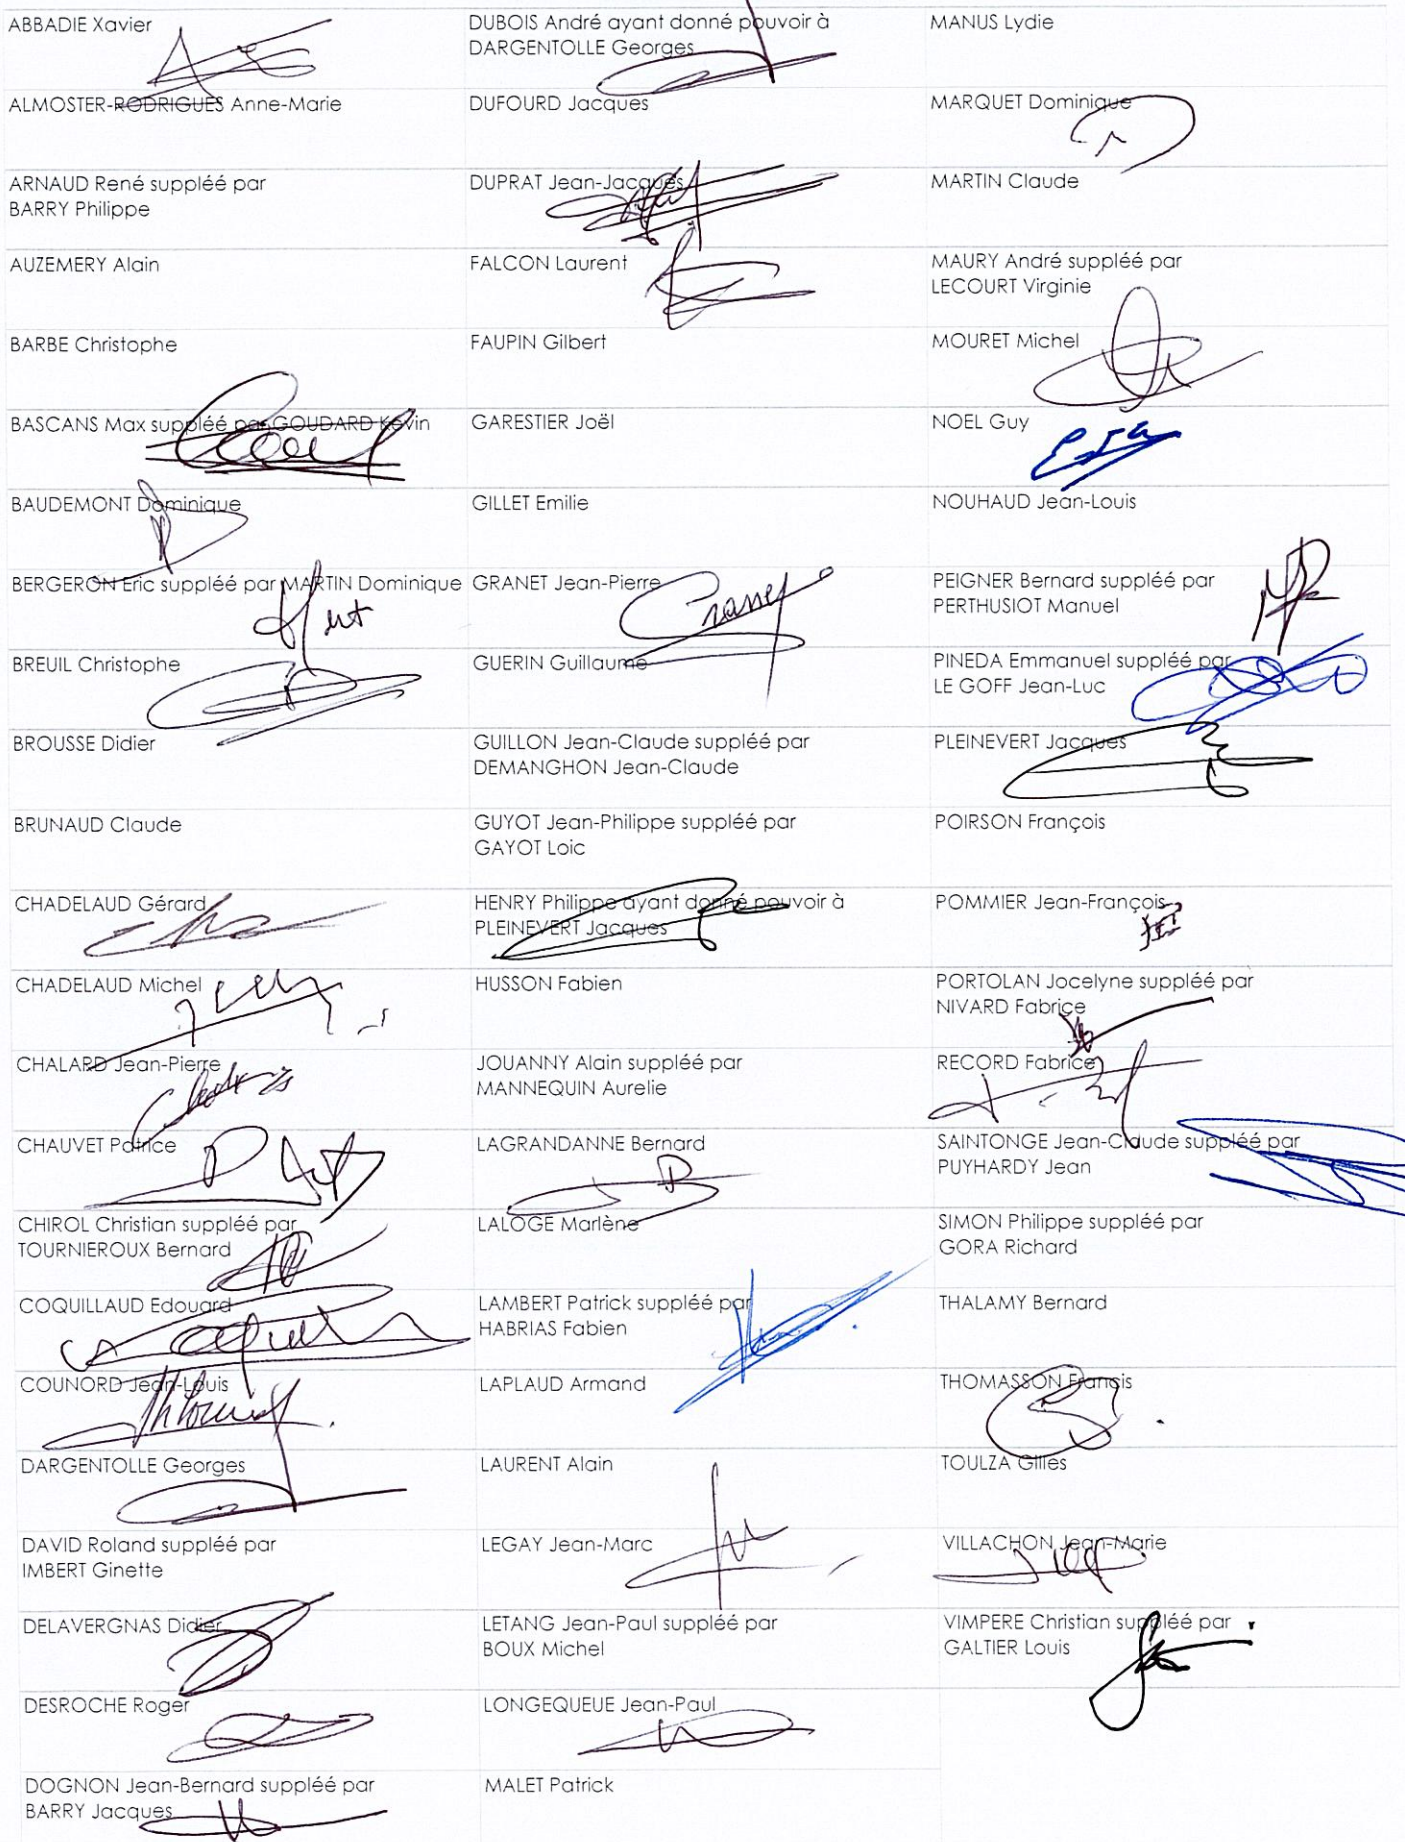 ABBADIE Xavier
ALMOSTER-RODRIGUES Anne-Marie
ARNAUD René suppléé par
BARRY Philippe
AUZEMERY Alain
BARBE Christophe
BASCANS Max suppléé par GOUDARD Kévin
BAUDEMONT Dominique
BERGERON Eric suppléé par MARTIN Dominique
BREUIL Christophe
BROUSSE Didier
BRUNAUD Claude
CHADELAUD Gérard
CHADELAUD Michel
CHALARD Jean-Pierre
CHAUVET Patrice
CHIROL Christian suppléé par
TOURNIEROUX Bernard
COQUILLAUD Edouard
COUNORD Jean-Louis
DARGENTOLLE Georges
DAVID Roland suppléé par
IMBERT Ginette
DELAVERGNAS Didier
DESROCHE Roger
DOGNON Jean-Bernard suppléé par
BARRY Jacques
DUBOIS André ayant donné pouvoir à
DARGENTOLLE Georges
DUFOURD Jacques
DUPRAT Jean-Jacques
FALCON Laurent
FAUPIN Gilbert
GARESTIER Joël
GILLET Emilie
GRANET Jean-Pierre
Granet
GUERIN Guillaume
GUILLON Jean-Claude suppléé par
DEMANGHON Jean-Claude
GUYOT Jean-Philippe suppléé par
GAYOT Loic
HENRY Philippe ayant donné pouvoir à
PLEINEVERT Jacques
HUSSON Fabien
JOUANNY Alain suppléé par
MANNEQUIN Aurelie
LAGRANDANNE Bernard
LALOGE Marlène
LAMBERT Patrick suppléé par
HABRIAS Fabien
LAPLAUD Armand
LAURENT Alain
LEGAY Jean-Marc
LETANG Jean-Paul suppléé par
BOUX Michel
LONGEQUEUE Jean-Paul
MALET Patrick
MANUS Lydie
MARQUET Dominique
MARTIN Claude
MAURY André suppléé par
LECOURT Virginie
MOURET Michel
NOEL Guy
NOUHAUD Jean-Louis
PEIGNER Bernard suppléé par
PERTHUSIOT Manuel
PINEDA Emmanuel suppléé par
LE GOFF Jean-Luc
PLEINEVERT Jacques
POIRSON François
POMMIER Jean-François
PORTOLAN Jocelyne suppléé par
NIVARD Fabrice
RECORD Fabrice
SAINTONGE Jean-Claude suppléé par
PUYHARDY Jean
SIMON Philippe suppléé par
GORA Richard
THALAMY Bernard
THOMASSON Francis
TOULZA Gilles
VILLACHON Jean-Marie
VIMPERE Christian suppléé par
GALTIER Louis